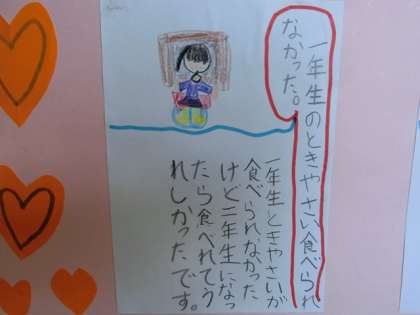 一年生のときやさい食べられ
なかった。
一年生ときやさいが
食べられなかった
けど二年生になっ
たら食べれてう
れしかったです。